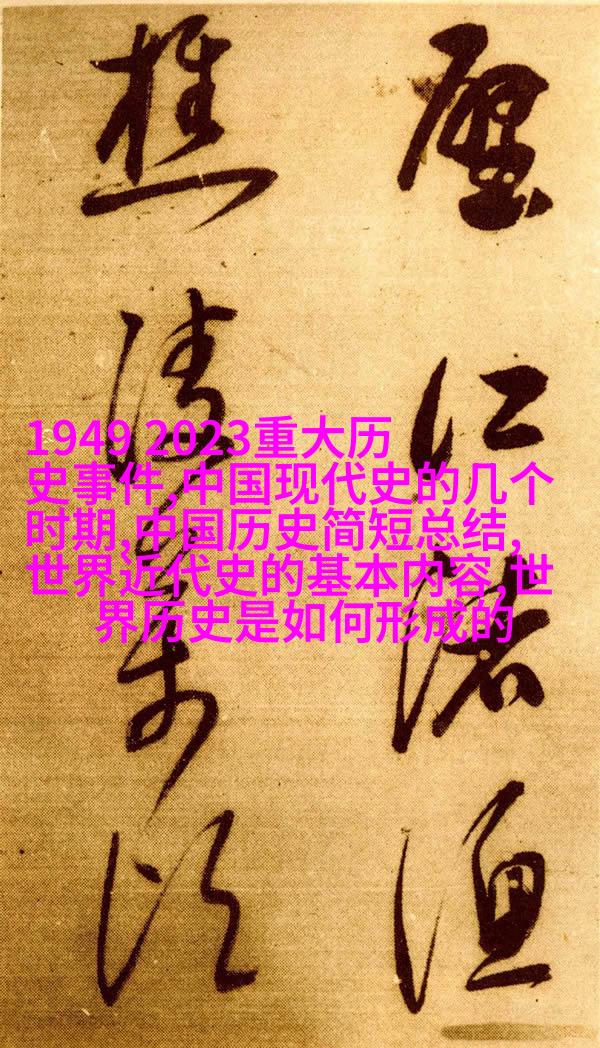 江渚渔
樵
1949 2023重大历
史事件,中国现代史的几个
时期,中国历史简短总结,
世界近代史的基本内容,世
界历史是如何形成的